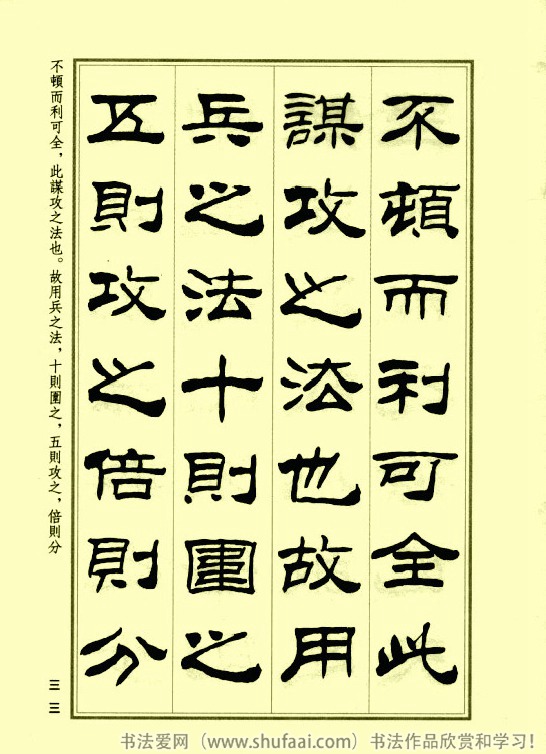 不頓而利可全此
謀攻之法也故用
兵之法十則圍之
五則攻之倍則分
不頓而利可全，此謀攻之法也。故用兵之法，十則圍之，五則攻之，倍則分
三三
书法爱网（www.shufaai.com）书法作品欣赏和学习！